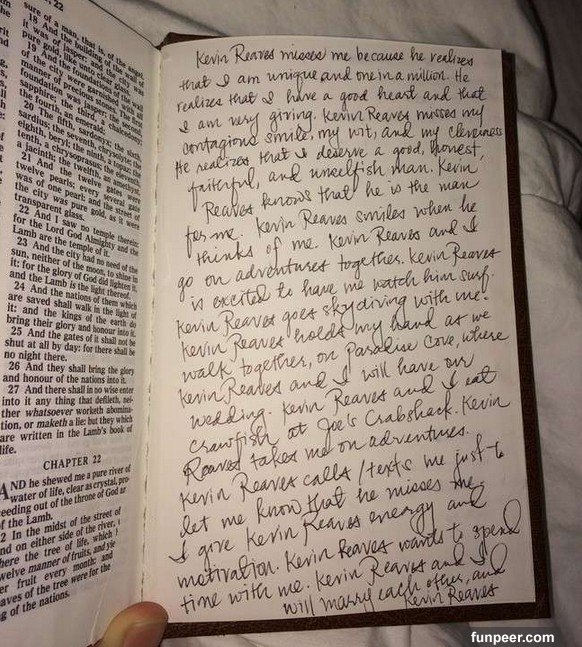 22
sure of a man, that is, of the angel.
18 And the building of the wall
of it was of jasper: and the city was
pure gold, like unto clear glass.
19 And the foundations of the wall
of the city were garnished with all
manner of precious stones. The first
foundation was jasper; the second,
sapphire; the third, a chalcedony;
the fourth, an emerald;
20 The fifth, sardonyx; the sixth,
sardius; the seventh, chrysolyte; the
eighth, beryl; the ninth, a topaz; the
tenth, a chrysoprasus; the eleventh,
a jacinth; the twelfth, an amethyst.
21 And the twelve gates were
twelve pearls; every several gate
was of one pearl: and the street of
the city was pure gold, as it were
transparent glass.
22 And I saw no temple therein:
for the Lord God Almighty and the
Lamb are the temple of it.
23 And the city had no need of the
sun, neither of the moon, to shine in
it: for the glory of God did lighten it,
and the Lamb is the light thereof.
24 And the nations of them which
are saved shall walk in the light of
it: and the kings of the earth do
bring their glory and honour into it.
25 And the gates of it shall not be
shut at all by day: for there shall be
no night there.
26 And they shall bring the glory
and honour of the nations into it.
27 And there shall in no wise enter
into it any thing that defileth, nei-
ther whatsoever worketh abomina-
tion, or maketh a lie: but they which
are written in the Lamb's book of
life.
CHAPTER 22
AND he shewed me a pure river of
water of life, clear as crystal, pro-
ceeding out of the throne of God and
of the Lamb.
2 In the midst of the street of
and on either side of the river,
there the tree of life, which
twelve manner of fruits, and
her fruit every month: and
leaves of the tree were for the
of the nations.
Kevin Reaves misses me because he realizes
that I am unique and one in a million. He
realizes that I have a good heart and that
I am very giving. Kevin Reaves misses my
contagious smile, my wit, and my cleverness
He realizes that I deserve a good, honest,
faithful, and unselfish man. Kevin
Reaves knows that he is the man
for me. Kevin Reaves smiles when he
thinks of me. Kevin Reaves and I
go on adventures together. Kevin Reaves
is excited to have me watch him surf.
Kevin Reaves goes skydiving with me.
Kevin Reaves holds my hand as we
walk together, on Paradise Cove, where
Kevin Reaves and I will have our
wedding. Kevin Reaves and I eat
crawfish at Joe's Crabshack. Kevin
Reaves takes me on adventures.
Kevin Reaves calls/texts me just to
let me know that he misses me.
I give Kevin Reaves energy and
motivation. Kevin Reaves wants to spend
time with me. Kevin Reaves and I
will marry each other, and
Kevin Reaves
funpeer.com